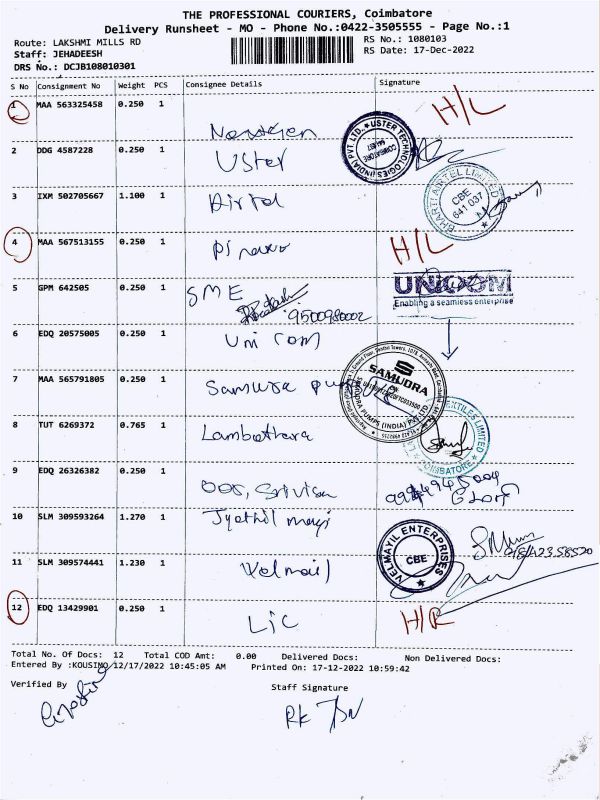 THE PROFESSIONAL COURIERS, Coimbatore
Delivery Runsheet - MO - Phone No.:0422-3505555 - Page No.:1
Route: LAKSHMI MILLS RD
RS No.: 1080103
Staff: JEHADEESH
RS Date: 17-Dec-2022
DRS No.: DCJB108010301
S No Consignment No Weight PCS Consignee Details Signature
1 MAA 563325458 0.250 1 H/L
USTER TECHNOLOGIES (INDIA) PVT. LTD. COIMBATORE
2 DDG 4587228 0.250 1 Uster
3 IXM 502705667 1.100 1 Airtel
BHARTI AIRTEL LIMITED CBE 641 037
4 MAA 567513155 0.250 1 H/L
5 GPM 642505 0.250 1 SME
9500980002
UNICOM
Enabling a seamless enterprise
6 EDQ 20575005 0.250 1 Unicom
7 MAA 565791805 0.250 1 Samudra
SAMUDRA
SAMUDRA PUMPS (INDIA) PVT LTD
8 TUT 6269372 0.765 1
TEXTILES LIMITED COIMBATORE
9 EDQ 26326382 0.250 1
10 SLM 309593264 1.270 1
VELMAYIL ENTERPRISES CBE
11 SLM 309574441 1.230 1 Velmail
12 EDQ 13429901 0.250 1 LIC H/R
Total No. Of Docs: 12 Total COD Amt: 0.00 Delivered Docs: Non Delivered Docs:
Entered By :KOUSINO 12/17/2022 10:45:05 AM Printed On: 17-12-2022 10:59:42
Verified By
Staff Signature